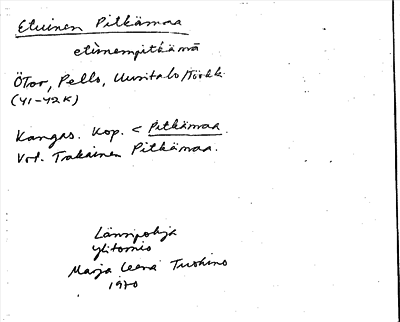 Etuinen Pitkämaa
etùinempitkämā
ÖTor, Pello, Uusitalo/Törhk.
(41-42K)
Kangas. Kop. < Pitkämaa.
Vrt. Takainen Pitkämaa.
Länsipohja
Ylitornio
Marja Leena Tuohino
1970